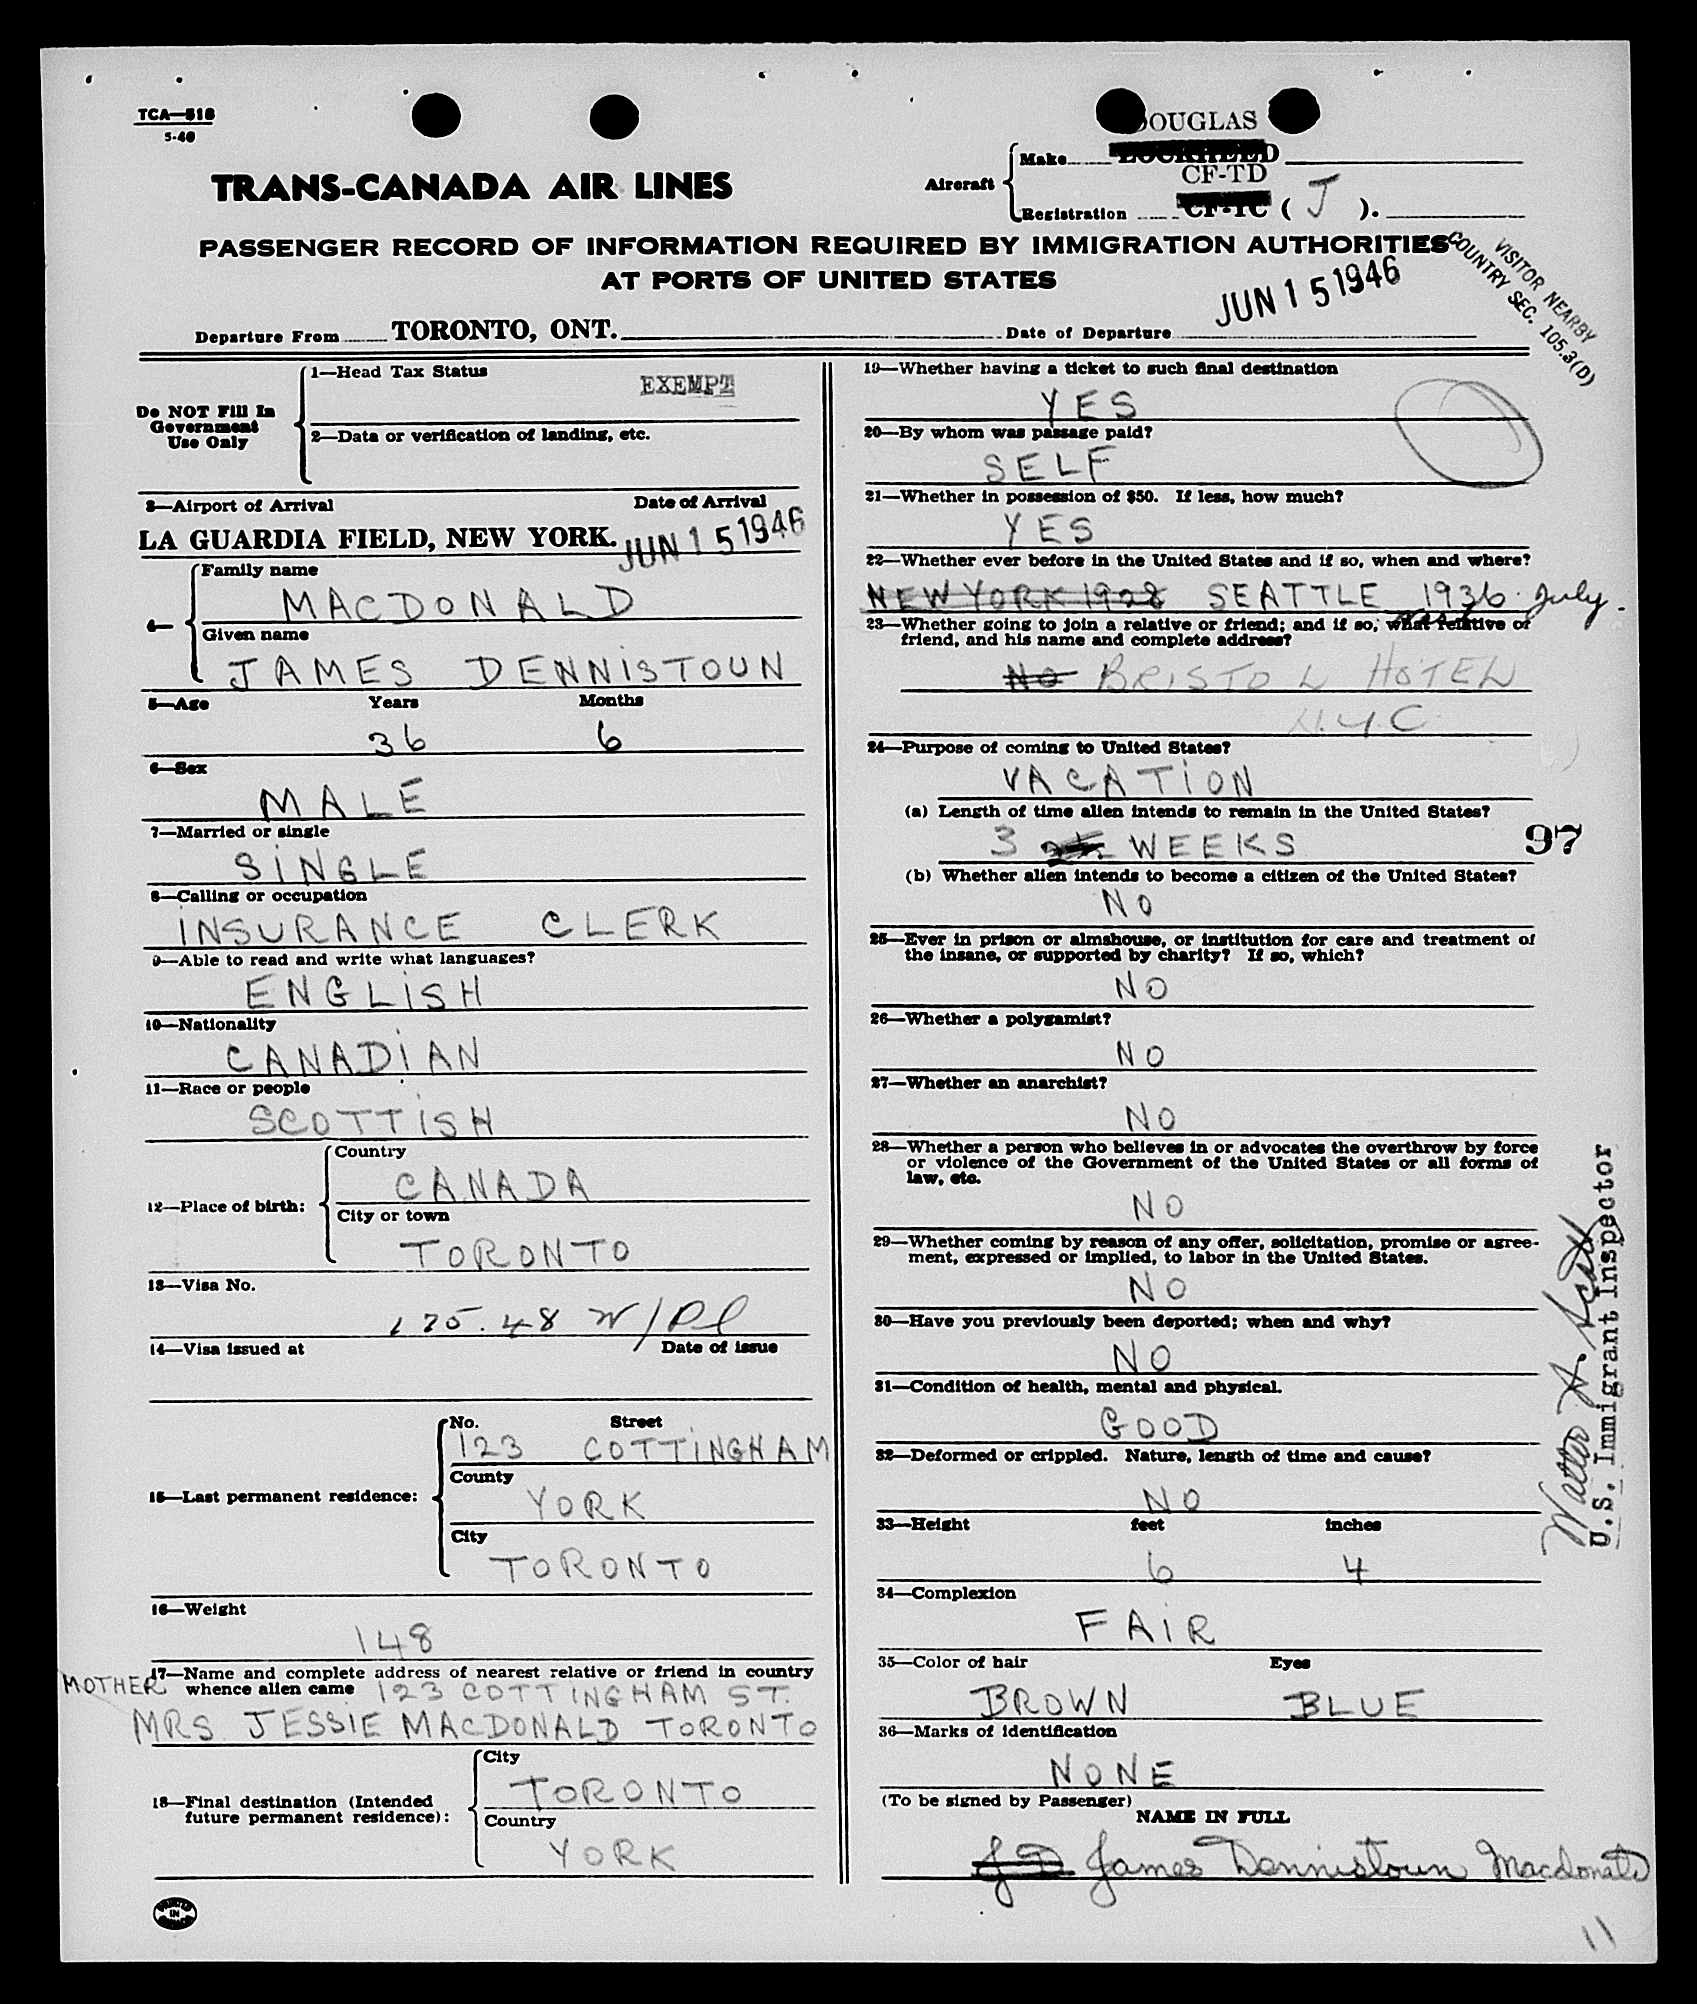 TCA—518
5-40
DOUGLAS
Make LOCKHEED
TRANS-CANADA AIR LINES
Aircraft
CF-TD
Registration CF-TC ( J ).
PASSENGER RECORD OF INFORMATION REQUIRED BY IMMIGRATION AUTHORITIES
AT PORTS OF UNITED STATES
VISITOR NEARBY
COUNTRY SEC. 105.3(D)
Departure From TORONTO, ONT. Date of Departure JUN 15 1946
Do NOT Fill In
Government
Use Only
1—Head Tax Status EXEMPT
2—Data or verification of landing, etc.
3—Airport of Arrival Date of Arrival
LA GUARDIA FIELD, NEW YORK. JUN 15 1946
4—
Family name
MACDONALD
Given name
JAMES DENNISTOUN
5—Age Years Months
36 6
6—Sex
MALE
7—Married or single
SINGLE
8—Calling or occupation
INSURANCE CLERK
9—Able to read and write what languages?
ENGLISH
10—Nationality
CANADIAN
11—Race or people
SCOTTISH
12—Place of birth:
Country
CANADA
City or town
TORONTO
13—Visa No.
175.48
14—Visa issued at Date of issue
15—Last permanent residence:
No. Street
123 COTTINGHAM
County
YORK
City
TORONTO
16—Weight
148
MOTHER 17—Name and complete address of nearest relative or friend in country
whence alien came 123 COTTINGHAM ST.
MRS JESSIE MACDONALD TORONTO
18—Final destination (Intended
future permanent residence):
City
TORONTO
Country
YORK
19—Whether having a ticket to such final destination
YES
20—By whom was passage paid?
SELF
21—Whether in possession of $50. If less, how much?
YES
22—Whether ever before in the United States and if so, when and where?
NEW YORK 1928 SEATTLE 1936 July.
23—Whether going to join a relative or friend; and if so, what relative or
friend, and his name and complete address?
NO BRISTOL HOTEL
N.Y.C
24—Purpose of coming to United States?
VACATION
(a) Length of time alien intends to remain in the United States?
3 WEEKS
97
(b) Whether alien intends to become a citizen of the United States?
NO
25—Ever in prison or almshouse, or institution for care and treatment of
the insane, or supported by charity? If so, which?
NO
26—Whether a polygamist?
NO
27—Whether an anarchist?
NO
28—Whether a person who believes in or advocates the overthrow by force
or violence of the Government of the United States or all forms of
law, etc.
NO
29—Whether coming by reason of any offer, solicitation, promise or agree-
ment, expressed or implied, to labor in the United States.
NO
30—Have you previously been deported; when and why?
NO
31—Condition of health, mental and physical.
GOOD
32—Deformed or crippled. Nature, length of time and cause?
NO
33—Height feet inches
6 4
34—Complexion
FAIR
35—Color of hair Eyes
BROWN BLUE
36—Marks of identification
NONE
(To be signed by Passenger)
NAME IN FULL
J D James Dennistoun Macdonald
Walter A. Scott
U.S. Immigrant Inspector
11